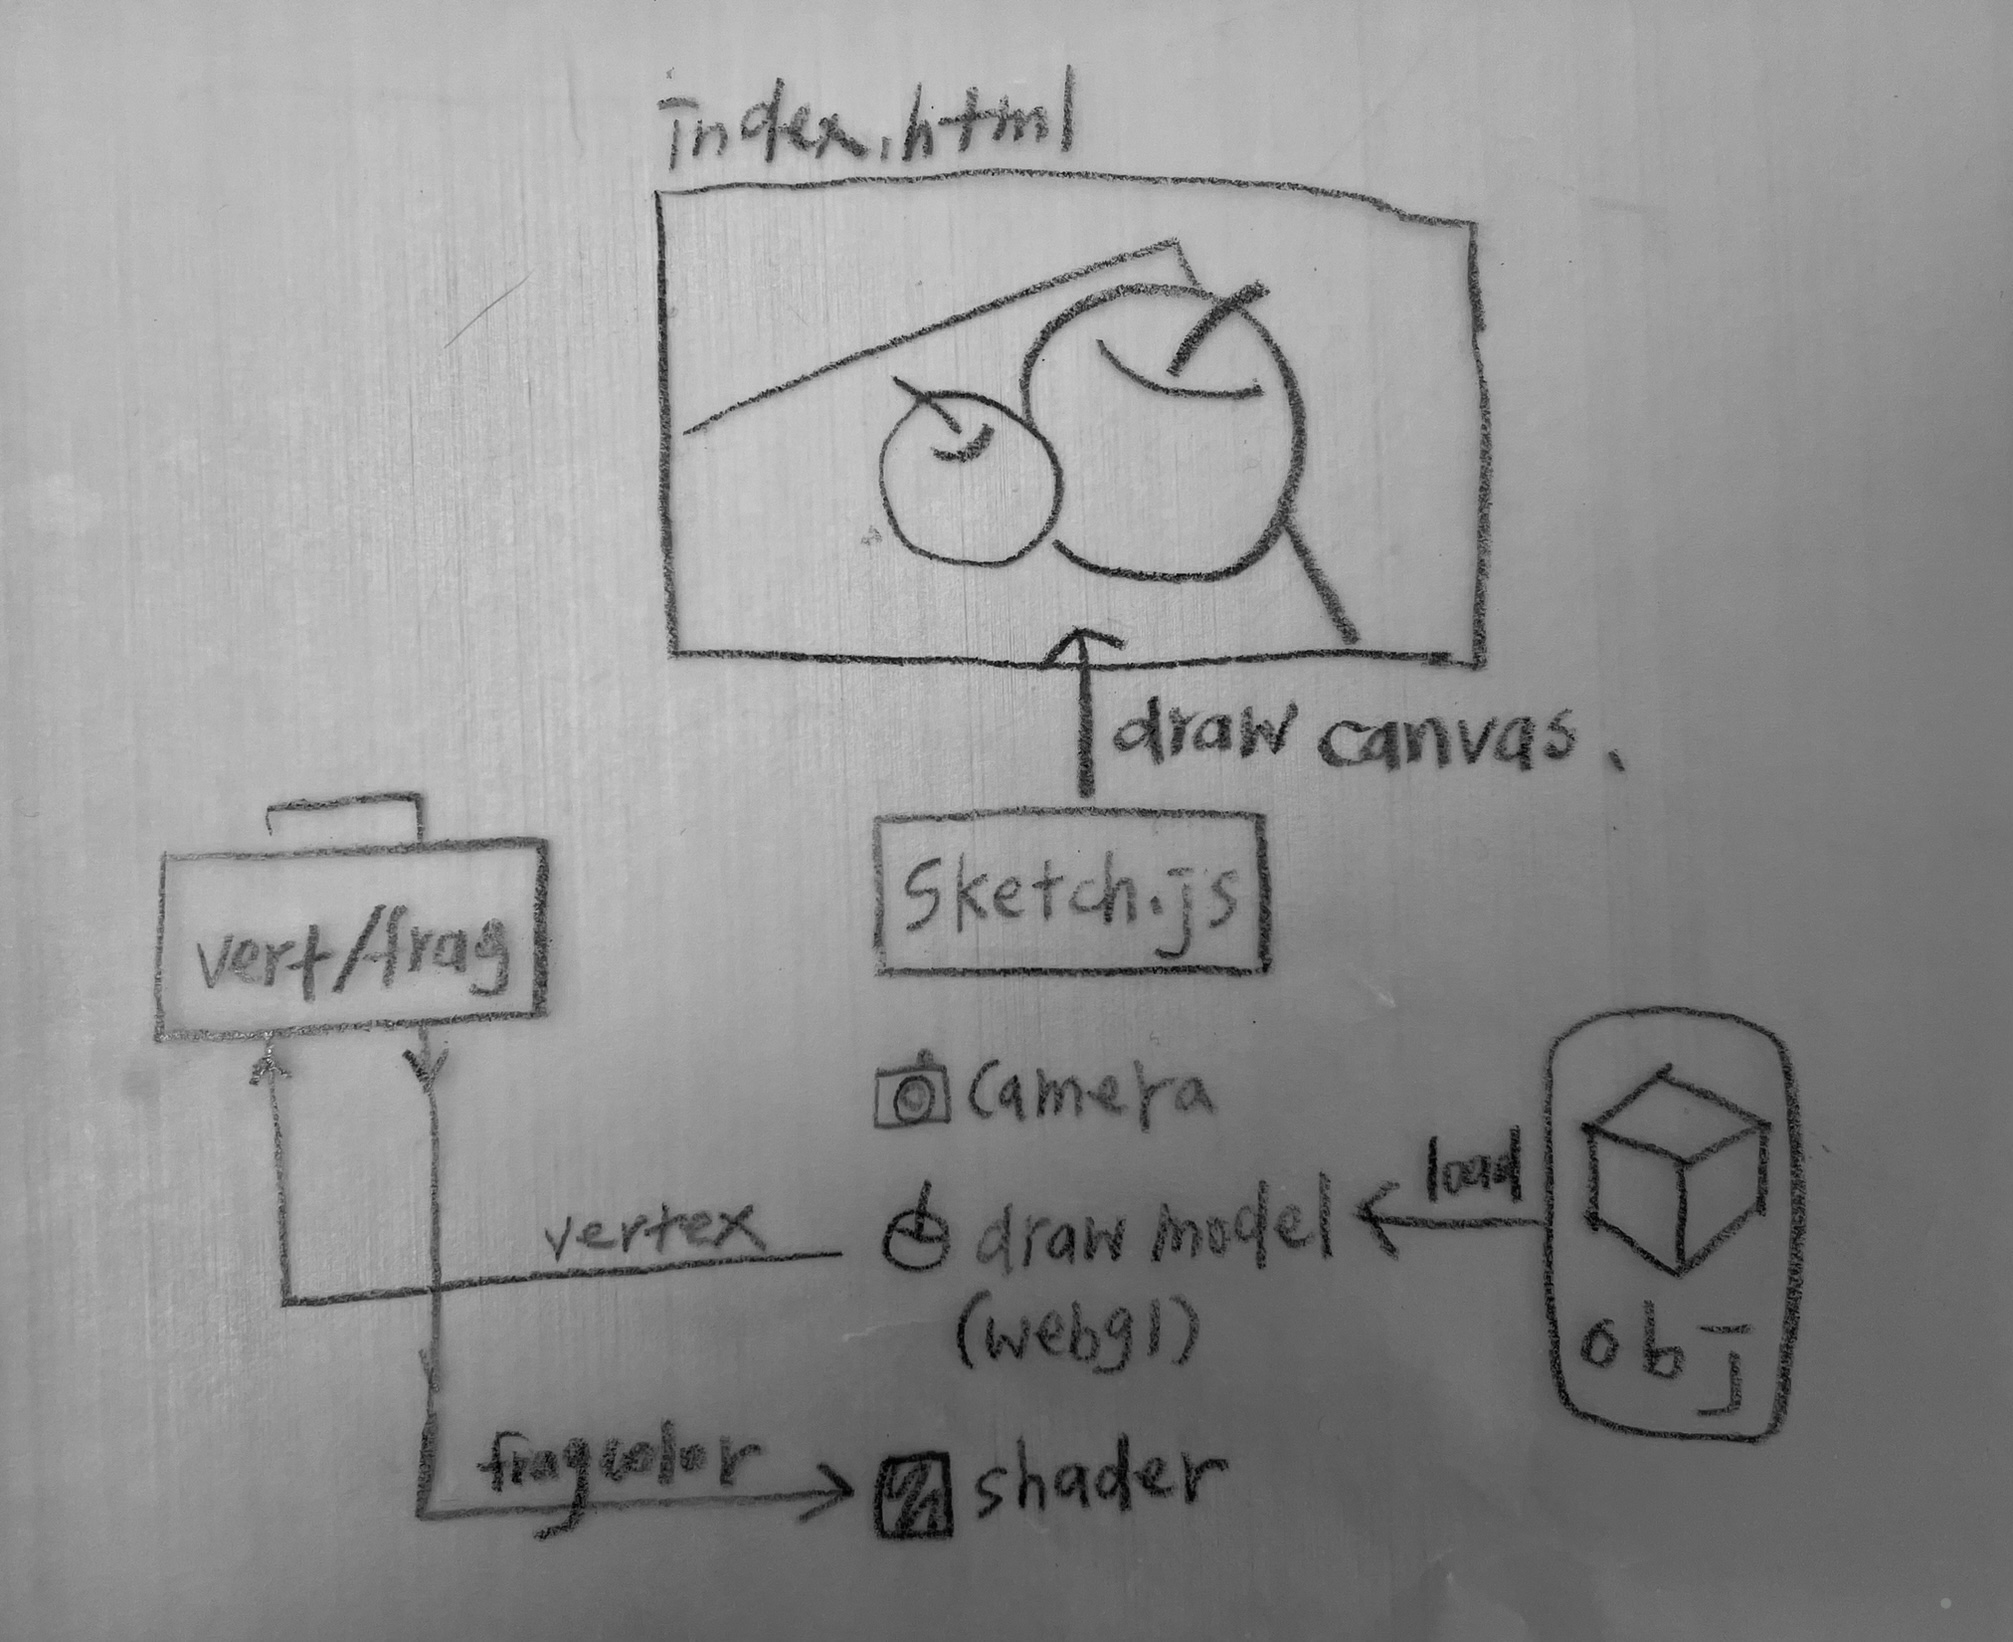 index.html
draw canvas.
vert/frag
Sketch.js
Camera
vertex
draw model
(webgl)
load
obj
fragcolor
shader